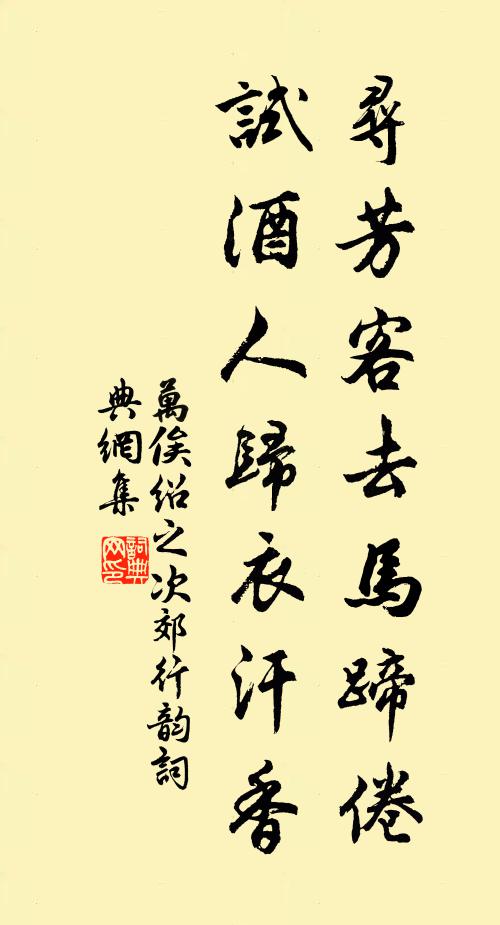 尋芳客去馬蹄倦
試酒人歸衣汗香
萬俟紹之次郊行韵詞
典網集
詞典网印